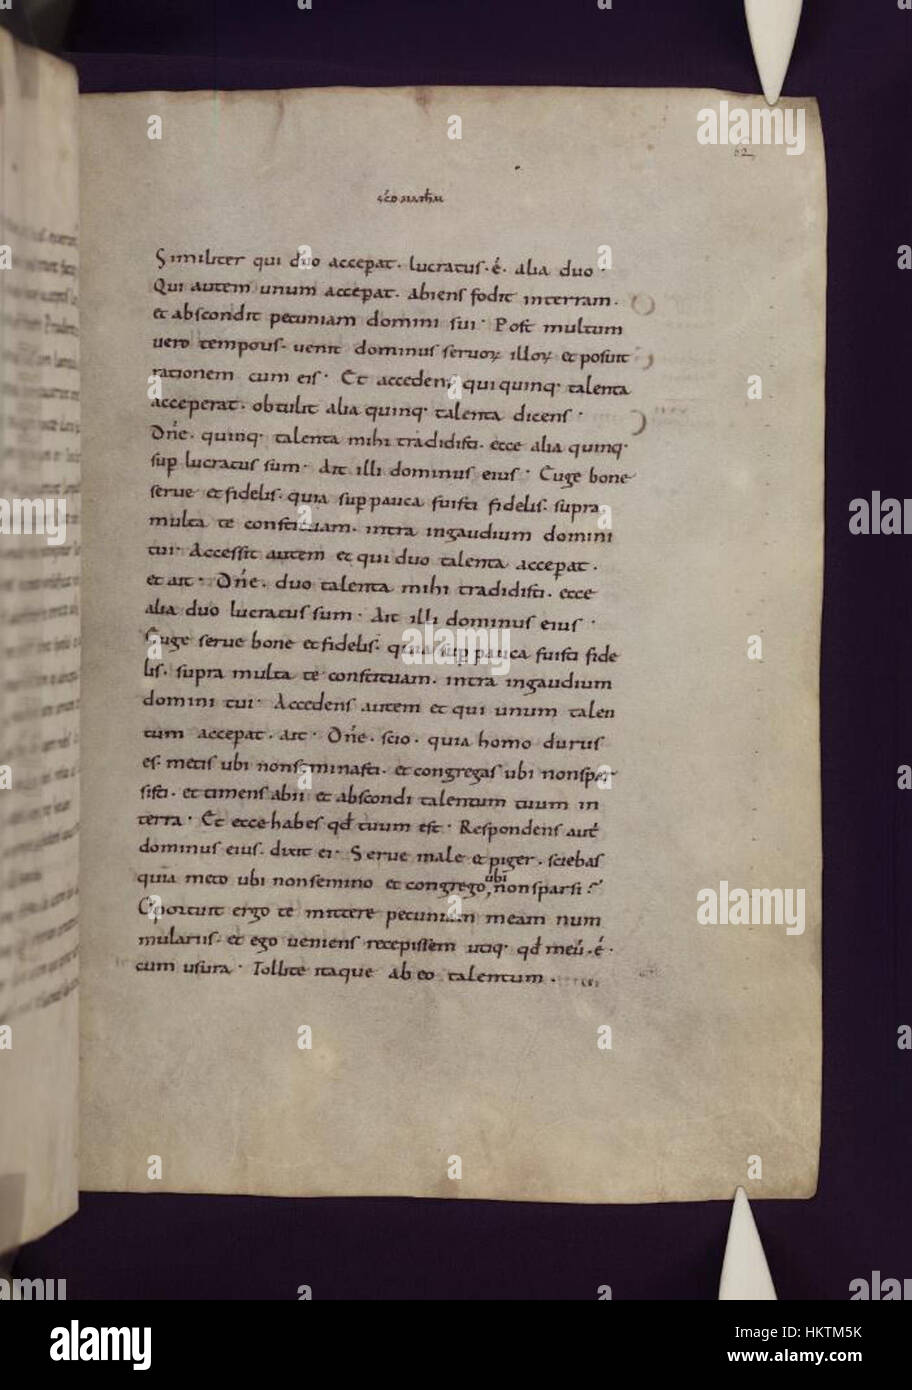 62
scd mathm
Similiter qui duo accepat. lucratus. ē. alia duo.
Qui autem unum accepat. abiens fodit interram.
et abscondit pecuniam domini sui. Post multum
vero temporis. venit dominus servorꝝ illorꝝ et posuit
rationem cum eis. Et accedens qui quinq. talenta
acceperat. obtulit alia quinq. talenta dicens.
Dñe. quinq. talenta mihi tradidisti. ecce alia quinq.
sup lucratus sum. Ait illi dominus eius. Euge bone
serve et fidelis. quia sup pauca fuisti fidelis. supra
multa te constituam. intra ingaudium domini
tui. Accessit autem et qui duo talenta accepat.
et ait. Dñe. duo talenta mihi tradidisti. ecce
alia duo lucratus sum. Ait illi dominus eius.
Euge serve bone et fidelis. quia sup pauca fuisti fide
lis. supra multa te constituam. intra ingaudium
domini tui. Accedens autem et qui unum talen
tum accepat. ait. Dñe. scio. quia homo durus
es. metis ubi nonseminasti. et congregas ubi nonspar
sisti. et timens abii et abscondi talentum tuum in
terra. Et ecce habes qd tuum est. Respondens aut
dominus eius. dixit ei. Serve male et piger. sciebas
quia meto ubi nonsemino et congrego ubi nonsparsi?
Oportuit ergo te mittere pecuniam meam num
mulariis. et ego veniens recepissem utiq. qd meū. ē.
cum usura. Tollite itaque ab eo talentum.
alamy
Image ID: HKTM5K
www.alamy.com